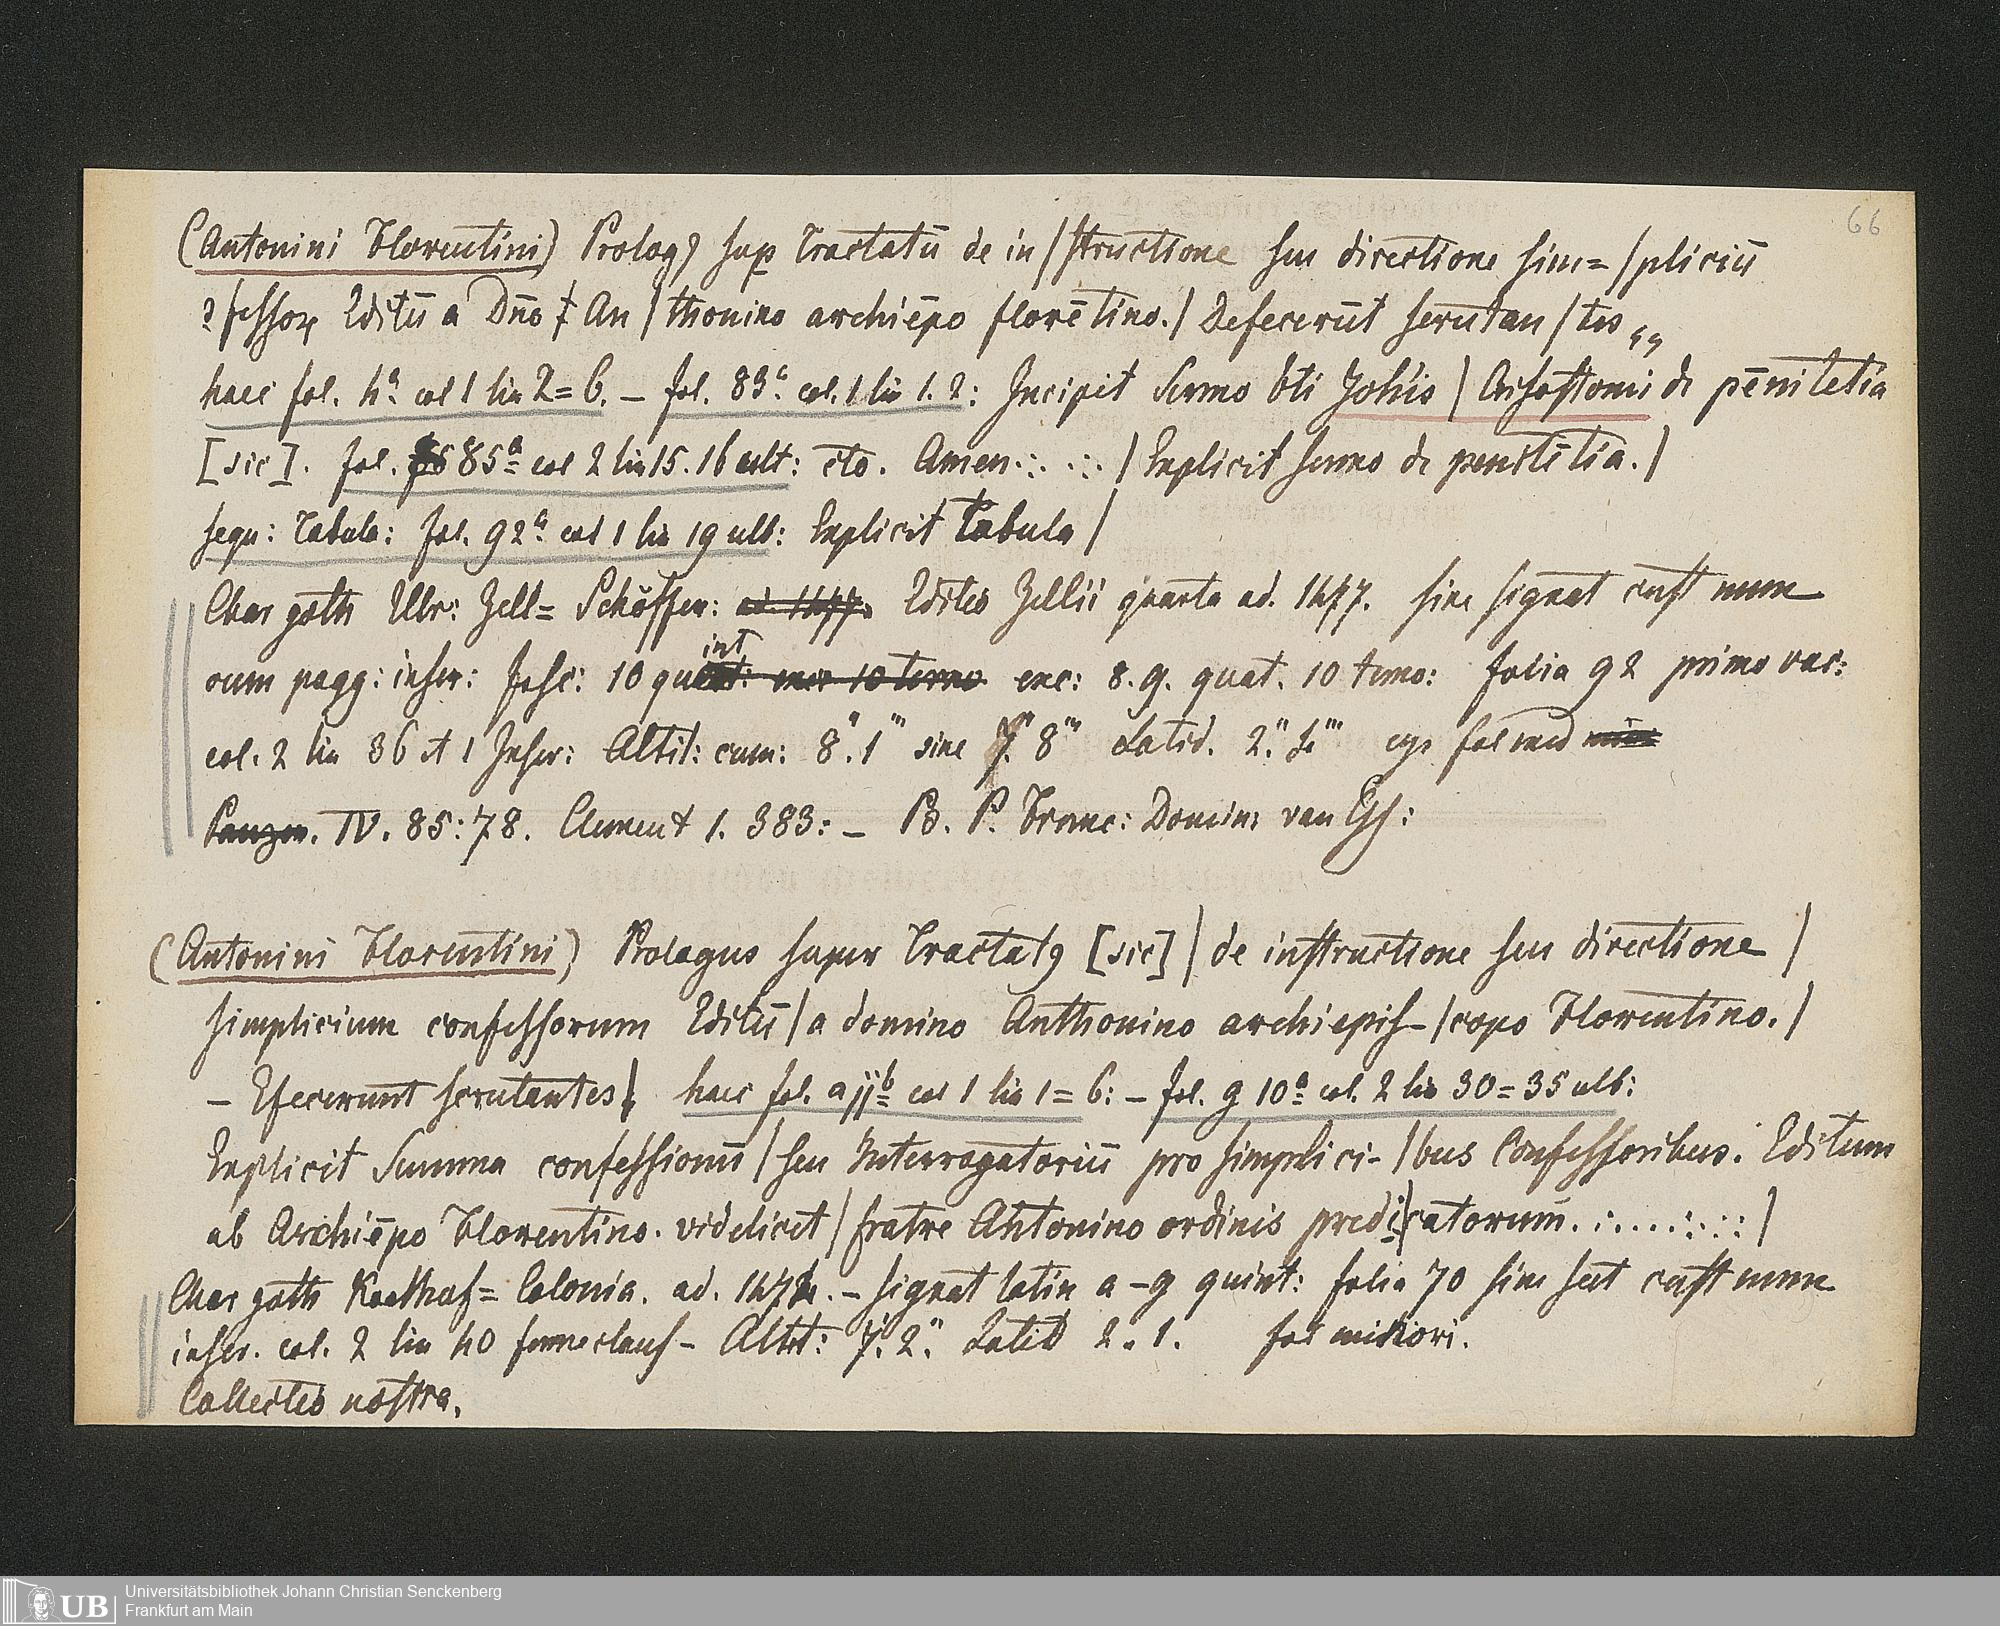 66
(Antonini Florentini) Prolog9 sup Tractatū de in / structione seu directione sim= / pliciū
ꝯfessoꝝ Editū a Dn̄o An / thonino archiēpo florētino. / Defecerūt scrutan / tes „
haec fol. 4a col 1 lin 2=6. – fol. 83a. col. 1 lin 1. 2: Incipit Sermo bti Johīs / Crisostomi de pēnitētia
[sic]. fol. 85a col 2 lin 15. 16 ult: cto. Amen. : . : . : / Explicit sermo de penitētia. /
sequ: Tabula: fol. 92a col 1 lin 19 ult: Explicit tabula /
Char goth Ulr: Zell= Schöffer: ad. 1477. Editio Zellii quarta ad. 1477. sine signat cust num
eum pagg: inscr: Fasc: 10 quint exc: 8. 9. quat. 10 terno: folia 92 primo vac:
col. 2 lin 36 et 1 Inscr: Altit: cum: 8". 1''' sine 7." 8''' Latid. 2." 4''' fol med
Panzer. IV. 85: 78. Clement 1. 383: – B. P. Franc: Domin: van Ess:
(Antonini Florentini) Prologus super Tractat9 [sic] / de instructione seu directione /
simplicium confessorum Editū / a domino Anthonino archiepis– / copo Florentino. /
– Efecerunt scrutantes / haec fol. a jjb col 1 lin 1=6: – fol. g 10a col. 2 lin 30=35 ult:
Explicit Summa confessionū / seu Interrogatoriū pro simplici– / bus Confessoribus. Editum
ab Archiēpo Florentino. videlicet / fratre Anthonino ordinis predi / catorum. . : . . . . : . : : /
Char goth Koelhof= Colonia. ad. 1474. – signat latin a – g quint: folia 70 sine cust num
inscr. col. 2 lin 40 – Altit: 7'. 2". Latid 2. 1. fol minori.
Collectio nostra.
UB
Universitätsbibliothek Johann Christian Senckenberg
Frankfurt am Main